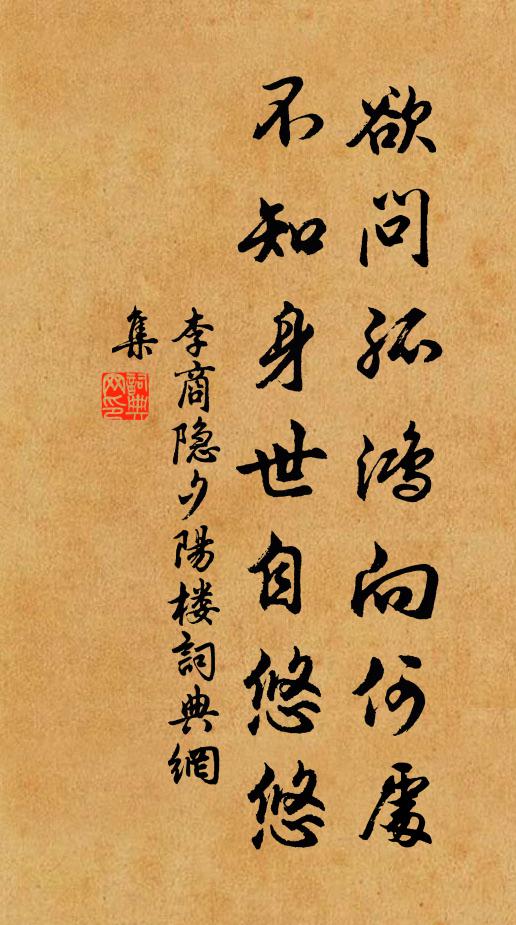 欲問孤鴻向何處
不知身世自悠悠
李商隐夕陽楼詞典網
集
詞典
网印